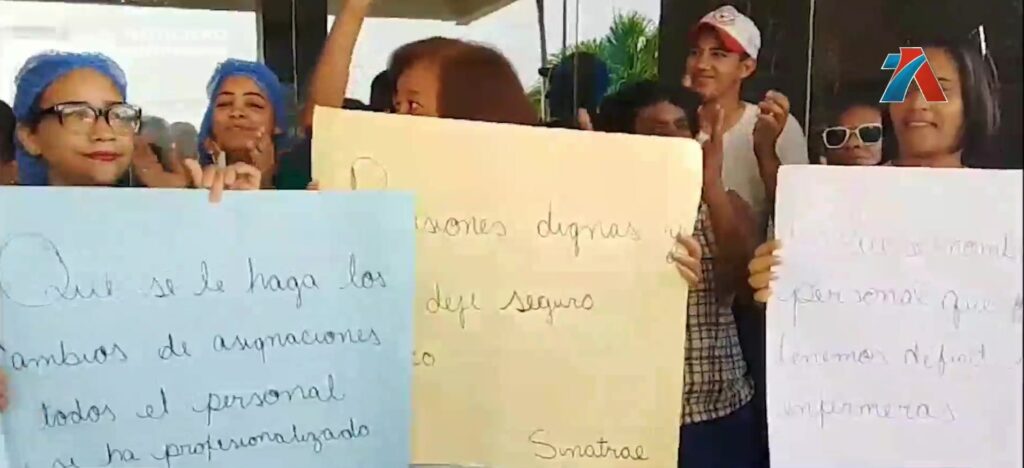 Que se le haga los
ambios de asignaciones
todos el personal
se ha profesionalizado
siones dignas y
deje seguro
co
Sinatrae
Que se nomb
personal que
tenemos deficit
enfermeras